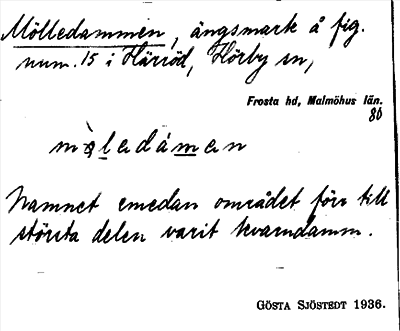 Mölledammen, ängsmark å fig.
num. 15 i Härröd, Hörby sn,
Frosta hd, Malmöhus län.
86
Namnet emedan området förr till
största delen varit kvarndamm.
GÖSTA SJÖSTEDT 1936.